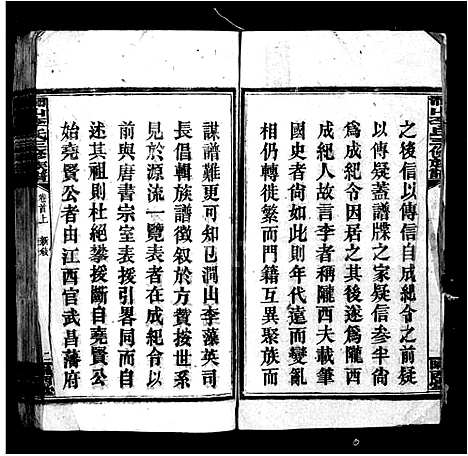 之後信以傳信自成紀令之前疑
以傳疑蓋譜牒之家疑信參半尙
爲成紀令因居其地遂爲隴西
成紀人故言李者稱隴西夫載筆
國史者尙如此則年代遠而變亂
相仍轉徙繁而門籍互異聚族而
謀譜難可知已澗山李藻英司
長倡輯族譜徵叙於方贊按世系
見於源流一覽表者在成紀令以
前與唐書宗室表援引畧同而自
述其祖則杜絕攀援斷自堯賢公
始堯賢公者由江西官武昌藩府
卷首上
二